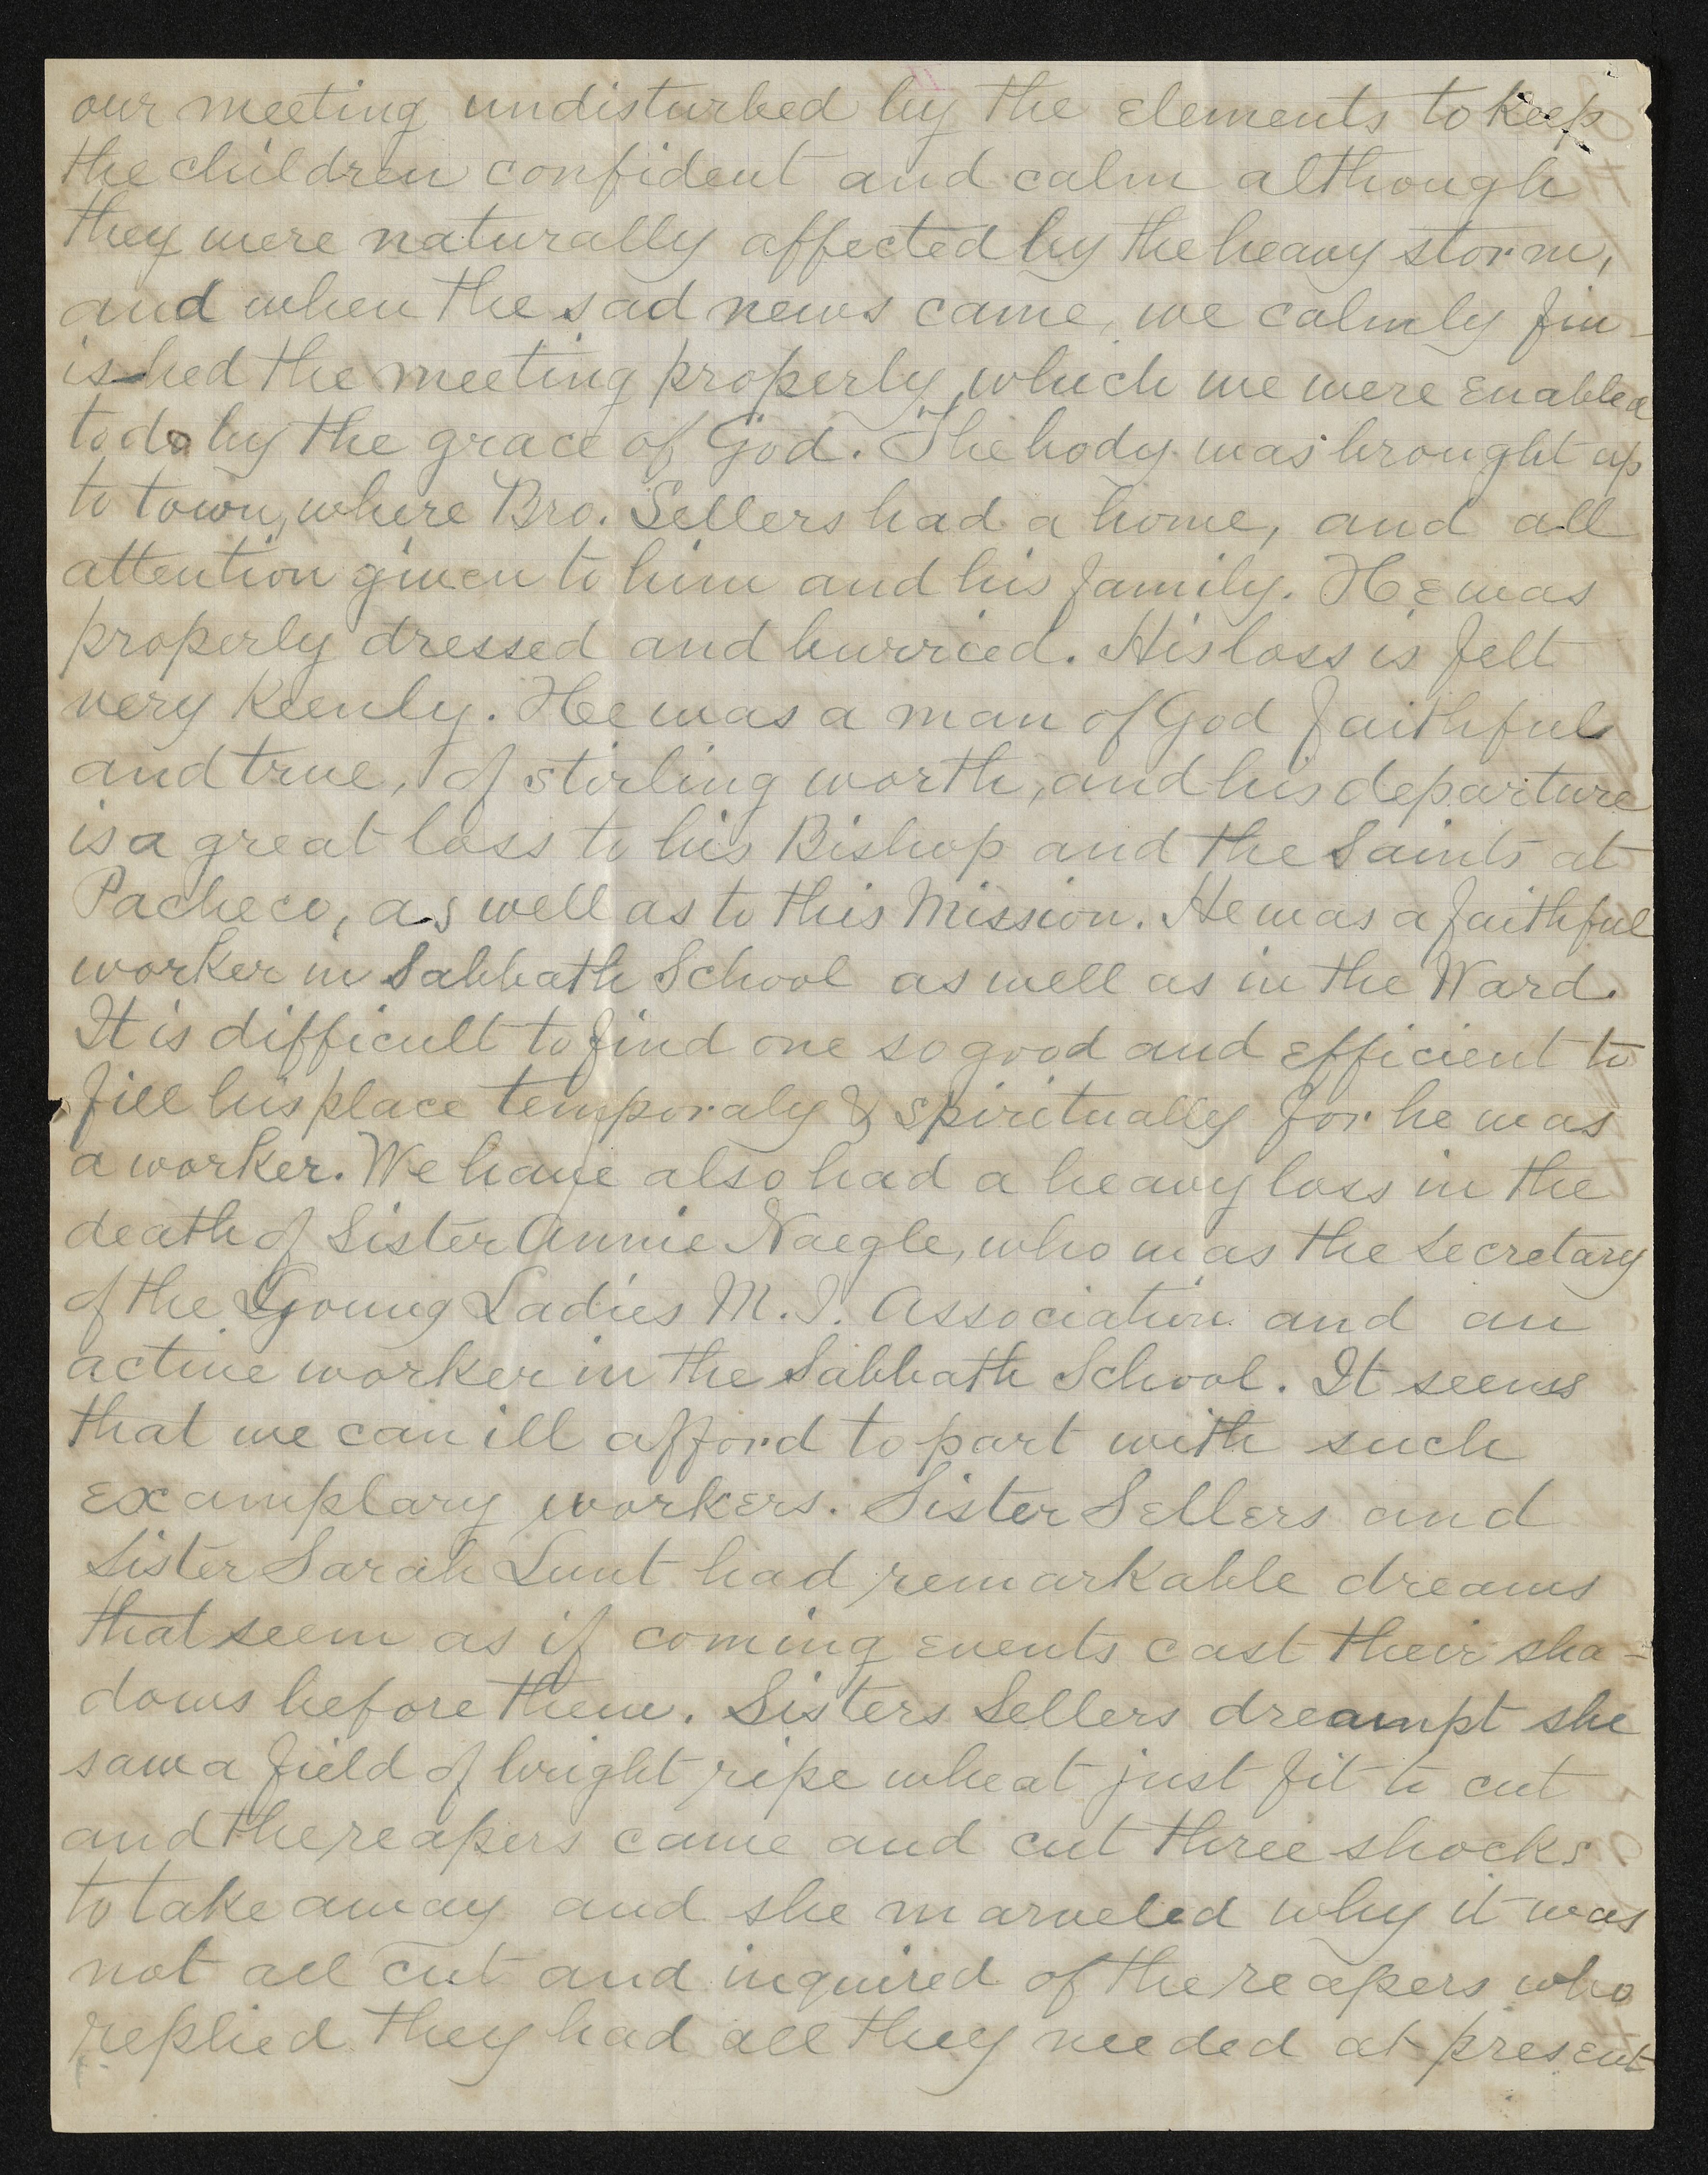 our meeting undisturbed by the elements to keep
the children confident and calm although
they were naturally affected by the heavy storm,
and when the sad news came, we calmly fin-
ished the meeting properly, which we were enabled
to do by the grace of God. The body was brought up
to town, where Bro. Sellers had a home, and all
attention given to him and his family. He was
properly dressed and burried. His loss is felt
very keenly. He was a man of God faithful
and true, of stirling worth, and his departure
is a great loss to his Bishop and the Saints at
Pacheco, as well as to this Mission. He was a faithful
worker in Sabbath School as well as in the Ward.
It is difficult to find one so good and efficient to
fill his place temporaly & spiritually for he was
a worker. We have also had a heavy loss in the
death of Sister Annie Naegle, who was the secretary
of the Young Ladies M. I. Association and an
active worker in the Sabbath School. It seems
that we can ill afford to part with such
examplary workers. Sister Sellers and
Sister Sarah Lunt had remarkable dreams
that seem as if coming events cast their sha=
dows before them. Sisters Sellers dreampt she
saw a field of bright ripe wheat just fit to cut
and the reapers came and cut three shocks
to take away and she marveled why it was
not all cut and inquired of the reapers who
replied they had all they needed at present